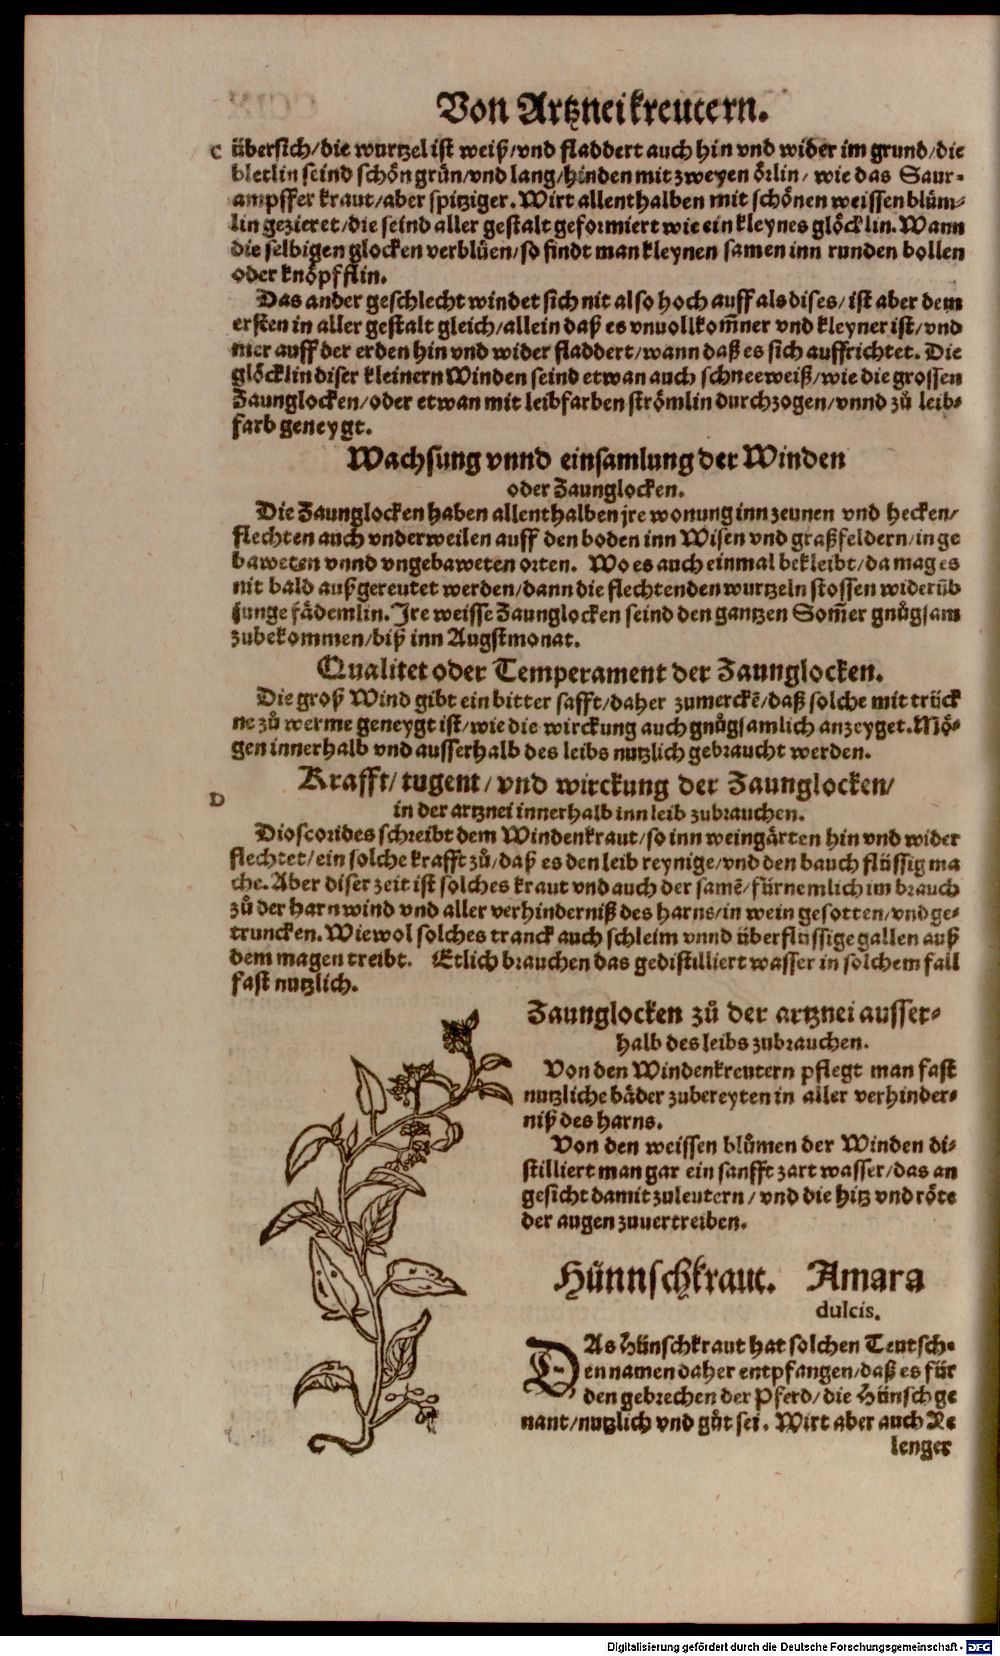 Von Artzneikreutern.
C übersich/die wurtzel ist weiß/vnd fladdert auch hin vnd wider im grund/die
bletlin seind schön grün/vnd lang/hinden mit zweyen örlin/ wie das Saur-
ampffer kraut/aber spitziger. Wirt allenthalben mit schönen weissen blüm-
lin gezieret/die seind aller gestalt geformiert wie ein kleynes glöcklin. Wann
die selbigen glocken verblüen/so findt man kleynen samen inn runden bollen
oder knöpfflin.
Das ander geschlecht windet sich nit also hoch auff als dises/ ist aber dem
ersten in aller gestalt gleich/allein daß es vnuollkom̃ner vnd kleyner ist/vnd
mer auff der erden hin vnd wider fladdert/wann daß es sich auffrichtet. Die
glöcklin diser kleinern Winden seind etwan auch schneeweiß/wie die grossen
Zaunglocken/oder etwan mit leibfarben strömlin durchzogen/vnnd zů leib-
farb geneygt.
Wachsung vnnd einsamlung der Winden
oder Zaunglocken.
Die Zaunglocken haben allenthalben jre wonung inn zeunen vnd hecken/
flechten auch vnderweilen auff den boden inn Wisen vnd graßfeldern/in ge
baweten vnnd vngebaweten orten. Wo es auch einmal bekleibt/da mag es
nit bald außgereutet werden/dann die flechtenden wurtzeln stossen widerüb
junge fädemlin. Jre weisse Zaunglocken seind den gantzen Som̃er gnůgsam
zubekommen/biß inn Augstmonat.
Qualitet oder Temperament der Zaunglocken.
Die groß Wind gibt ein bitter safft/daher zumerckẽ/daß solche mit trück
ne zů werme geneygt ist/wie die wirckung auch gnůgsamlich anzeyget. Mö-
gen innerhalb vnd ausserhalb des leibs nutzlich gebraucht werden.
Krafft/ tugent/ vnd wirckung der Zaunglocken/
D
in der artznei innerhalb inn leib zubrauchen.
Dioscorides schreibt dem Windenkraut/so inn weingärten hin vnd wider
flechtet/ein solche krafft zů/daß es den leib reynige/vnd den bauch flüssig ma
che. Aber diser zeit ist solches kraut vnd auch der samẽ/fürnemlich im brauch
zů der harnwind vnd aller verhinderniß des harns/in wein gesotten/vnd ge-
truncken. Wiewol solches tranck auch schleim vnnd überflüssige gallen auß
dem magen treibt. Etlich brauchen das gedistilliert wasser in solchem fall
fast nutzlich.
Zaunglocken zů der artznei ausser-
halb des leibs zubrauchen.
Von den Windenkreutern pflegt man fast
nutzliche bäder zubereyten in aller verhinder-
niß des harns.
Von den weissen blůmen der Winden di-
stilliert man gar ein sanfft zart wasser/das an
gesicht damit zuleutern/ vnd die hitz vnd röte
der augen zuuertreiben.
Hünnschkraut. Amara
dulcis.
DAs Hünschkraut hat solchen Teutsch-
en namen daher entpfangen/daß es für
den gebrechen der Pferd/die Hünsch ge
nant/nutzlich vnd gůt sei. Wirt aber auch Ze
lenger
Digitalisierung gefördert durch die Deutsche Forschungsgemeinschaft - DFG